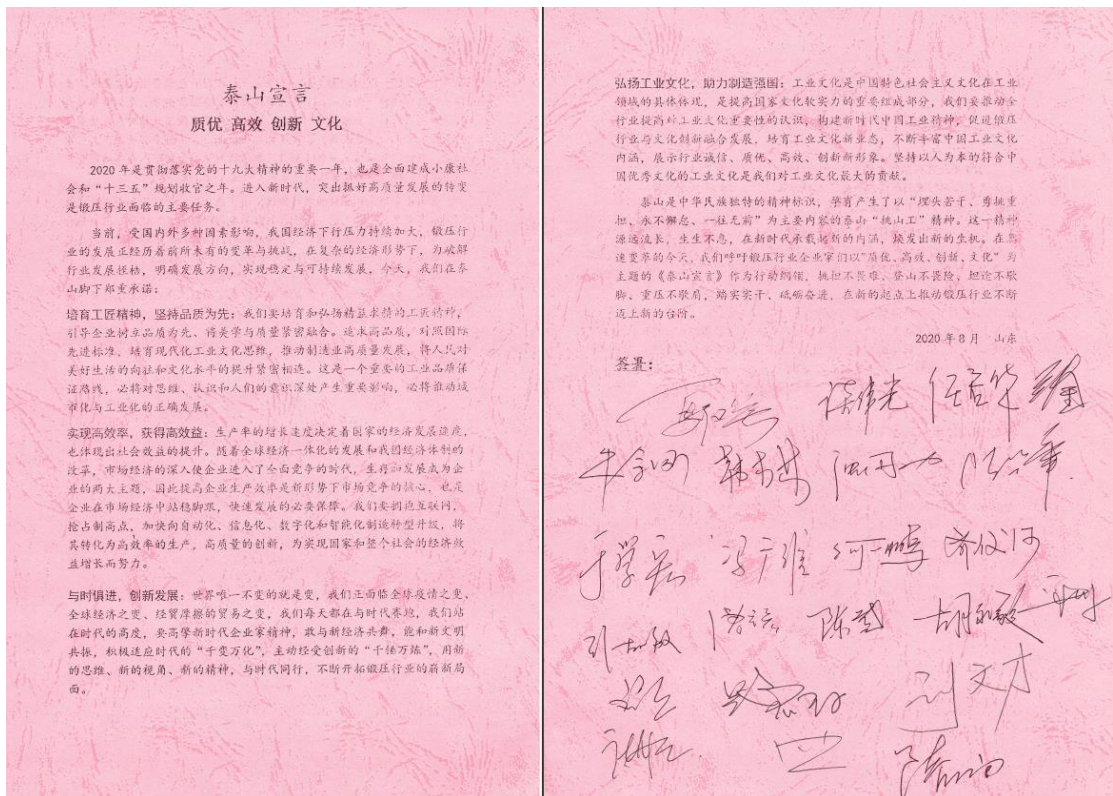 泰山宣言
质优 高效 创新 文化
2020 年是贯彻落实党的十九大精神的重要一年，也是全面建成小康社
会和“十三五”规划收官之年。进入新时代，突出抓好高质量发展的转变
是锻压行业面临的主要任务。
当前，受国内外多种因素影响，我国经济下行压力持续加大，锻压行
业的发展正经历着前所未有的变革与挑战，在复杂的经济形势下，为破解
行业发展桎梏，明确发展方向，实现稳定与可持续发展，今天，我们在泰
山脚下郑重承诺：
培育工匠精神，坚持品质为先：我们要培育和弘扬精益求精的工匠精神，
引导企业树立品质为先、将美学与质量紧密融合。追求高品质，对照国际
先进标准、培育现代化工业文化思维，推动制造业高质量发展，将人民对
美好生活的向往和文化水平的提升紧密相连。这是一个重要的工业品质保
证路线，必将对思维、认识和人们的意识深处产生重要影响，必将推动城
市化与工业化的正确发展。
实现高效率，获得高效益：生产率的增长速度决定着国家的经济发展速度，
也体现出社会效益的提升。随着全球经济一体化的发展和我国经济体制的
改革，市场经济的深入使企业进入了全面竞争的时代，生存和发展成为企
业的两大主题，因此提高企业生产效率是新形势下市场竞争的核心，也是
企业在市场经济中站稳脚跟，快速发展的必要保障。我们要拥抱互联网，
抢占制高点，加快向自动化、信息化、数字化和智能化制造转型升级，将
其转化为高效率的生产，高质量的创新，为实现国家和整个社会的经济效
益增长而努力。
与时俱进，创新发展：世界唯一不变的就是变，我们正面临全球疫情之变、
全球经济之变、经贸摩擦的贸易之变，我们每天都在与时代赛跑，我们站
在时代的高度，要高擎新时代企业家精神，敢与新经济共舞，能和新文明
共振，积极适应时代的“千变万化”，主动经受创新的“千锤万炼”，用新
的思维、新的视角、新的精神，与时代同行，不断开拓锻压行业的崭新局
面。
弘扬工业文化，助力制造强国：工业文化是中国特色社会主义文化在工业
领域的具体体现，是提高国家文化软实力的重要组成部分，我们要推动全
行业提高对工业文化重要性的认识，构建新时代中国工业精神，促进锻压
行业与文化创新融合发展，培育工业文化新业态，不断丰富中国工业文化
内涵，展示行业诚信、质优、高效、创新新形象。坚持以人为本的符合中
国优秀文化的工业文化是我们对工业文化最大的贡献。
泰山是中华民族独特的精神标识，孕育产生了以“埋头苦干、勇挑重
担、永不懈怠、一往无前”为主要内容的泰山“挑山工”精神。这一精神
源远流长，生生不息，在新时代承载起新的内涵，焕发出新的生机。在急
速变革的今天，我们呼吁锻压行业企业家们以“质优、高效、创新、文化”为
主题的《泰山宣言》作为行动纲领，挑担不畏难、登山不畏险、坦途不歇
脚、重压不歇肩，踏实实干、砥砺奋进，在新的起点上推动锻压行业不断
迈上新的台阶。
2020 年 8 月 山东
签署：
陈伟光 任启华
牛余刚
于学宏 冯广维 何一鹏
陈莹
刘文才